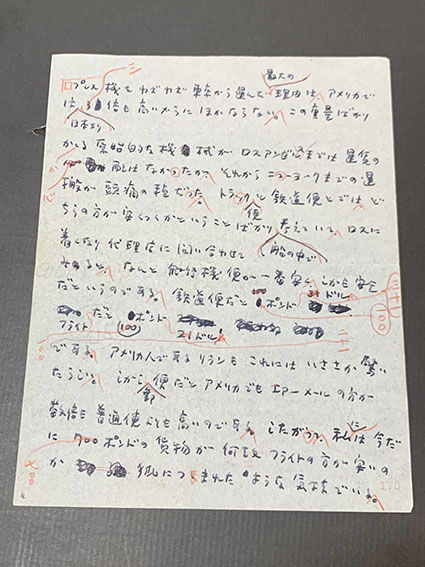 最大の
プレス機をわざわざ東京から運んだ理由は、アメリカで
は、3倍も高いからにほかならない。この重量ばかり
日本より
かる原始的な機械がロスアンゼルスまでは運賃の
心配はなかったが、それからニューヨークまでの運
搬が頭痛の種だった。トラックと鉄道便とではど
ちらの方が安くつくかということばかり考えていて、ロスに
便
着くなり代理店に問い合わせて
船の中で
みると、なんと飛行機便が一番安く、しかも安全
だというのである。鉄道便だと100ポンド 31ドル
三十一
だと ポンド
フライト (100) 21ドル
二十一
(100)
である。アメリカ人であるリランもこれにはいささか驚い
たらしい。しかし郵便だとアメリカでもエアーメールの方が
数倍も普通便よりも高いのである。したがって、私は今だ
に
に700ポンドの貨物が何故フライトの方が安いの
か 狐につままれたような気持でいる。
七〇〇
170